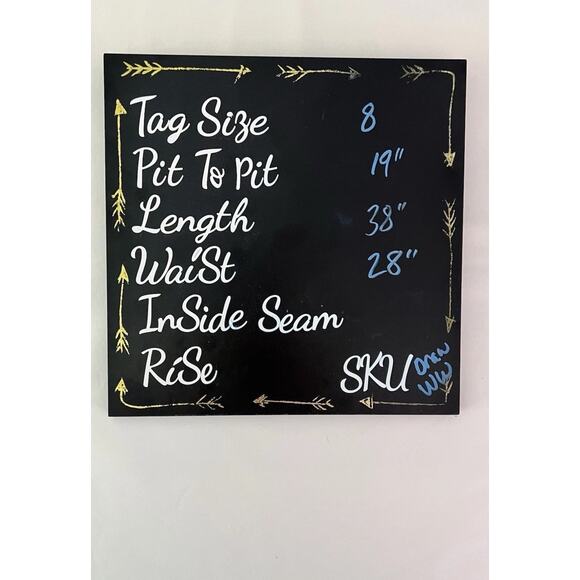 Tag Size 8
Pit To Pit 19"
Length 38"
Waist 28"
InSide Seam
RiSe SKU
WW